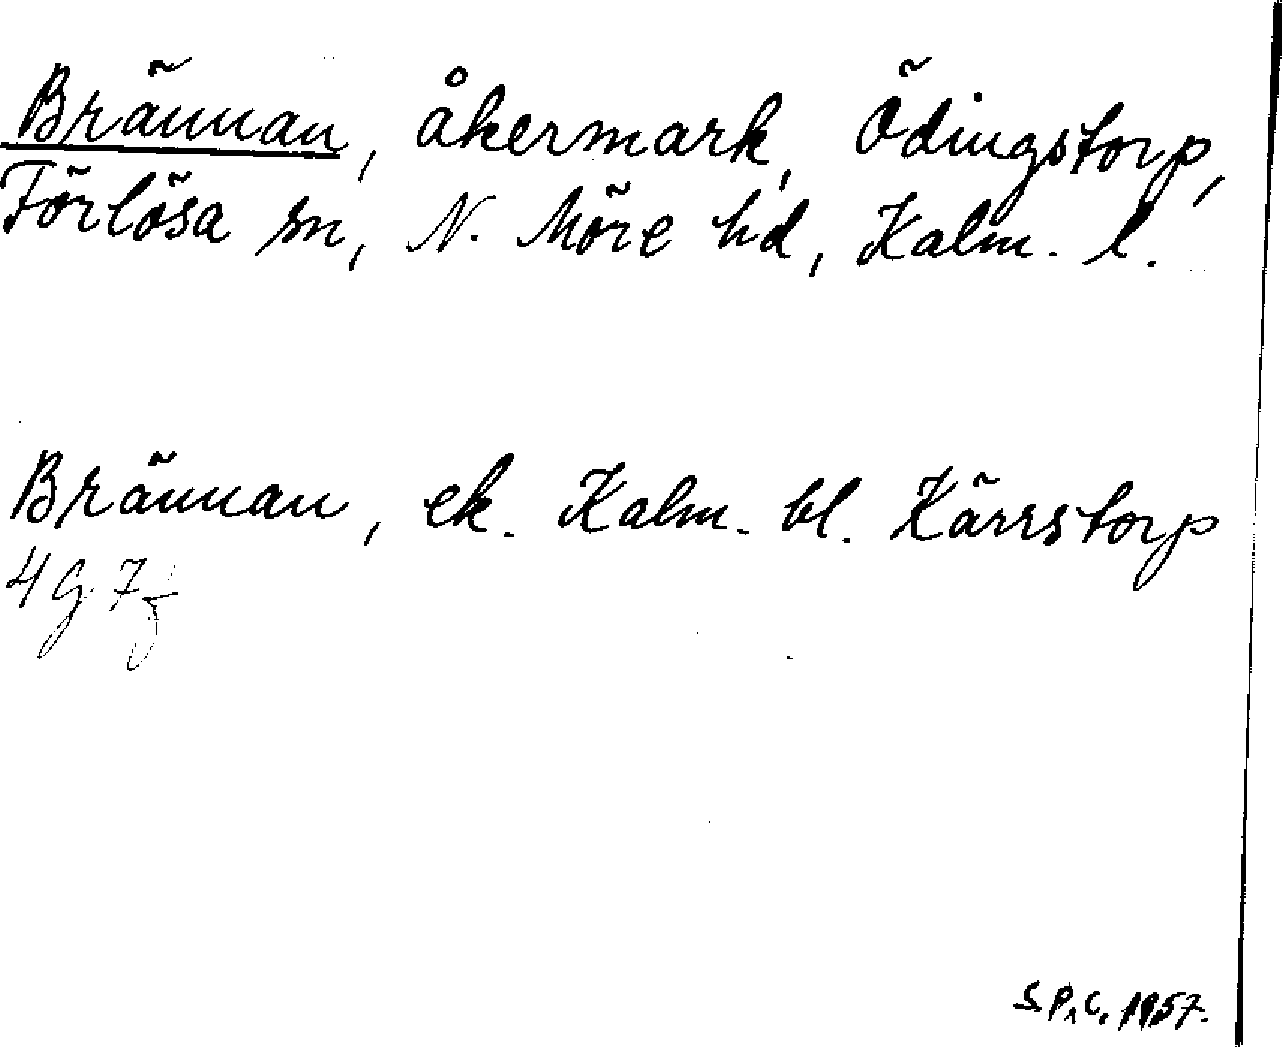 Brännan, åkermark, Ödingstorp,
Förlösa sn, N. Möre hd, Kalm. l.
Brännan, ek. Kalm. bl. Kärrstorp
4 G 7 f
S.P.C. 1957.